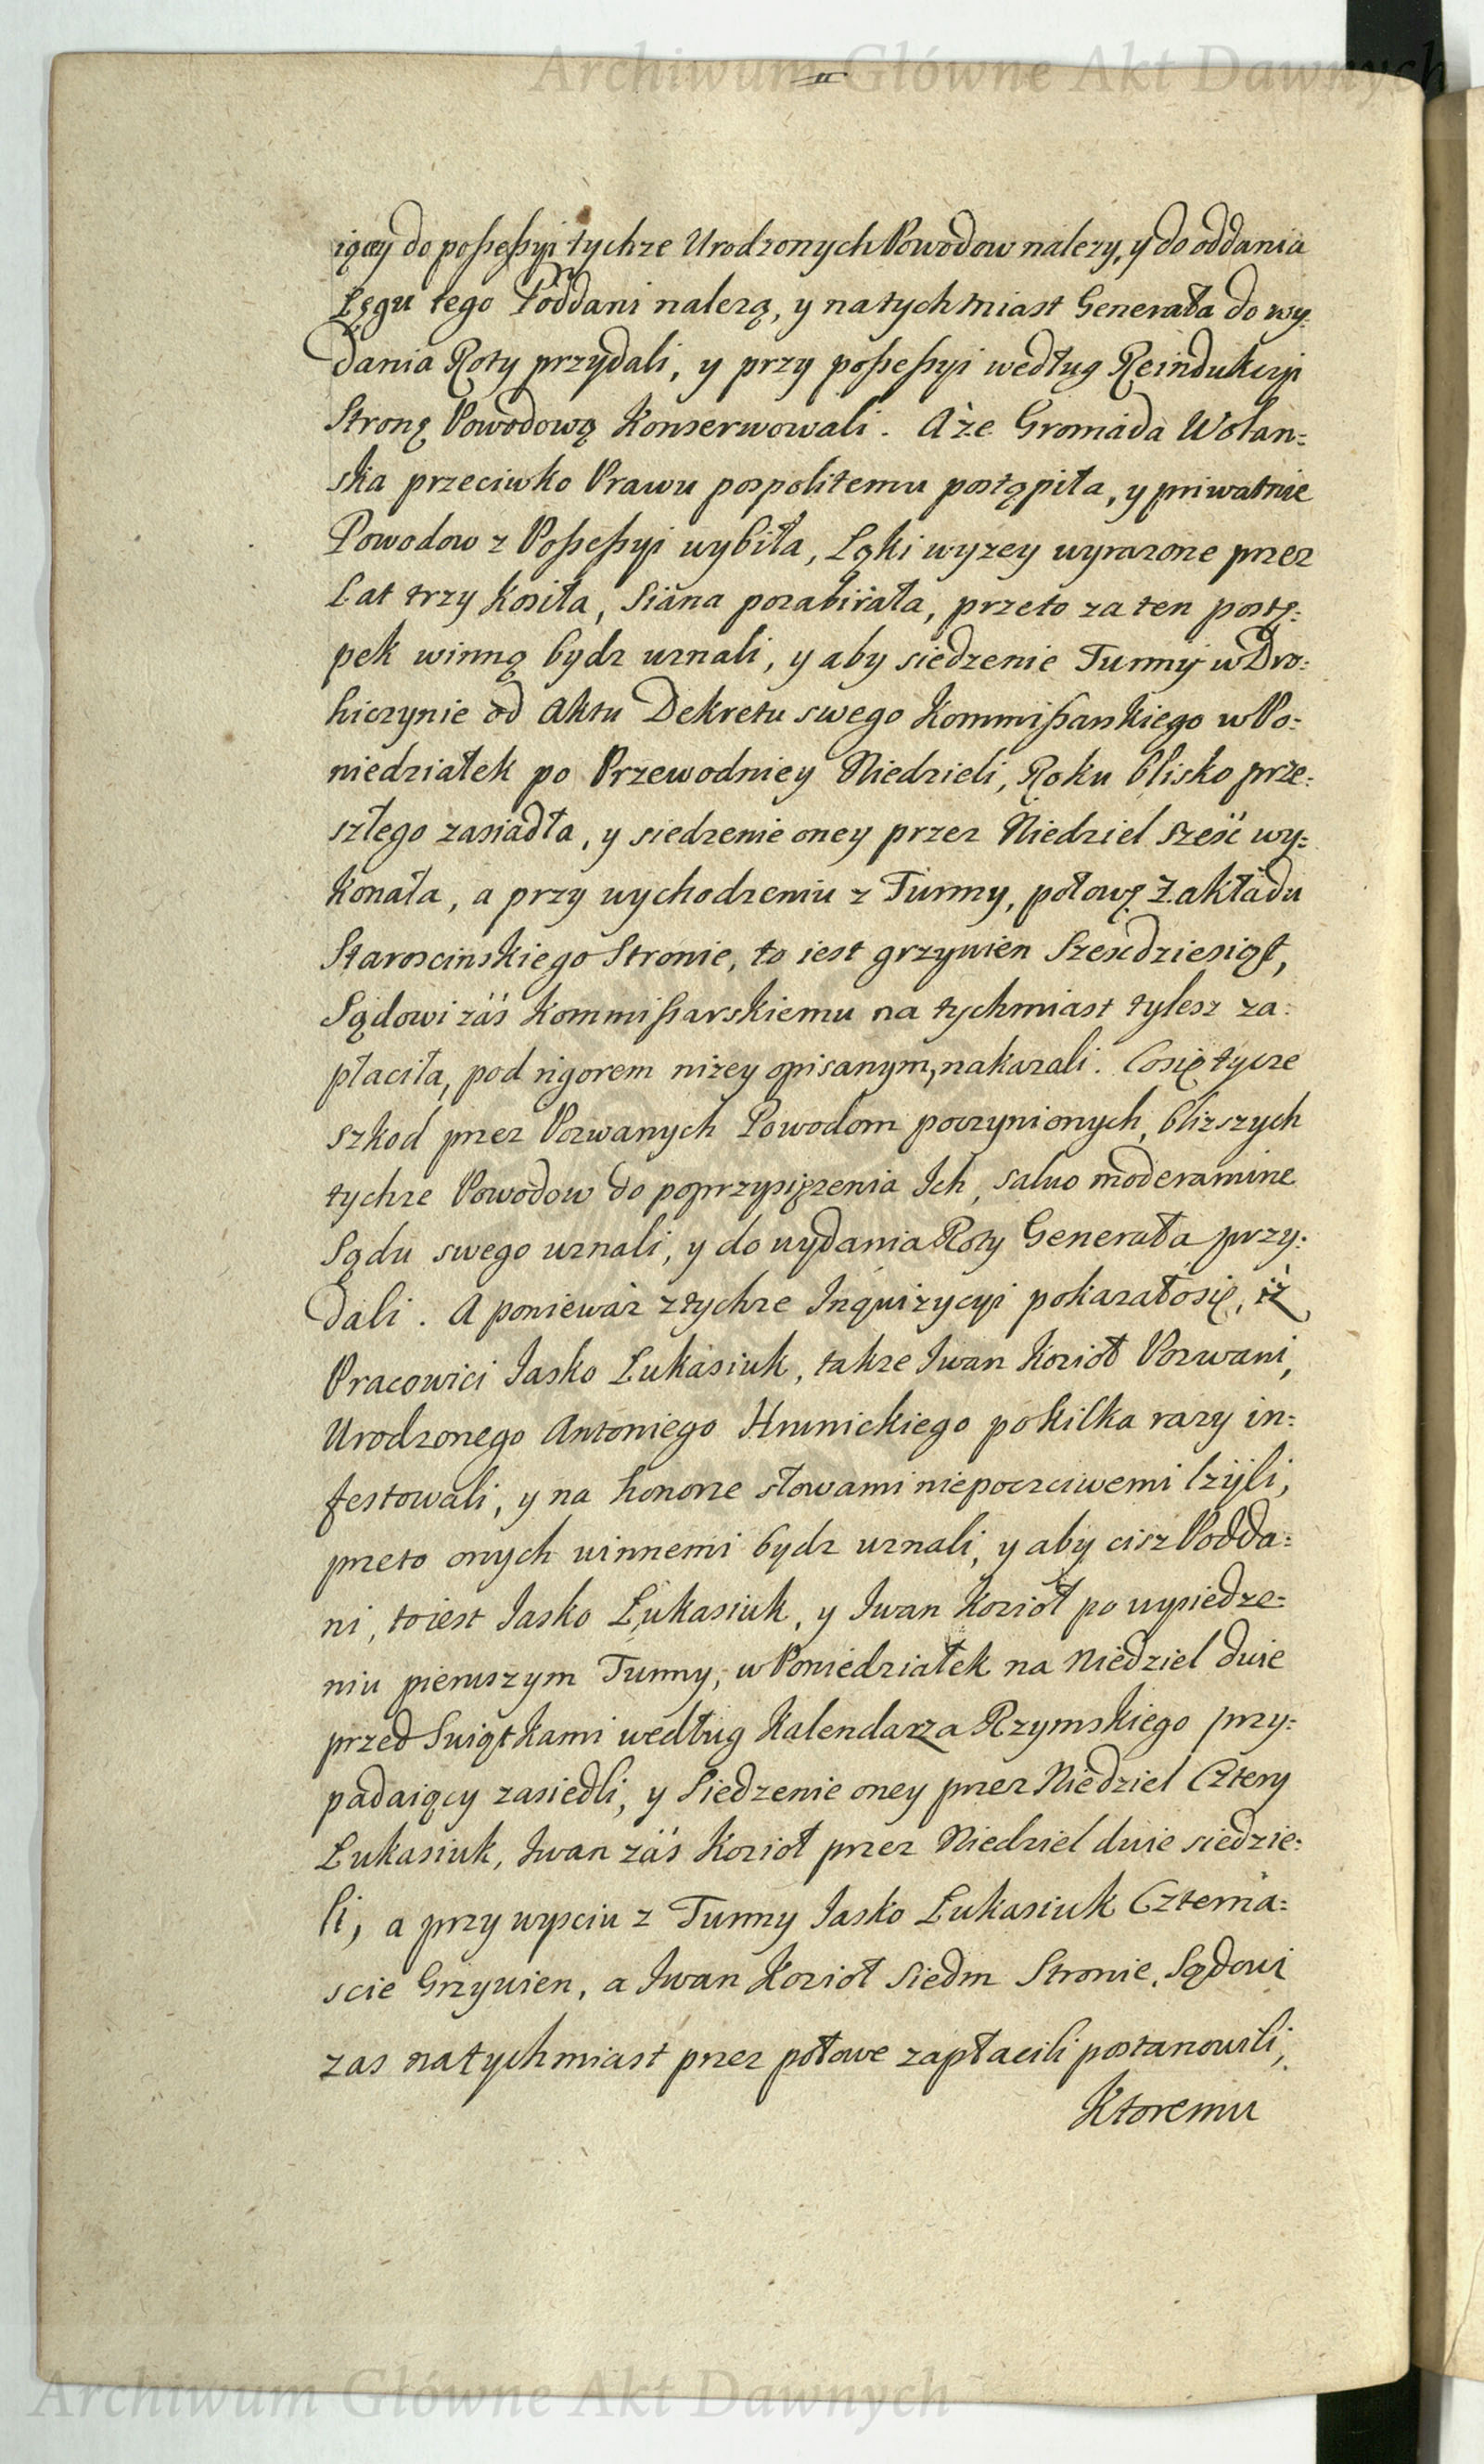 Archiwum Główne Akt Dawnych
iącey do possessyi tychze Urodzonych Powodow nalezy, y do oddania
Łęgu tego Poddani nalezą, y natychmiast Generała do wy-
dania Roty przydali, y przy possessyi według Reindukcyi
Stronę Powodową Konserwowali. A że Gromada Wolan=
ska przeciwko Prawu pospolitemu postąpiła, y priwatnie
Powodow z Possessyi wybiła, Łąki wyzey wyrazone przez
Lat trzy kosiła, Siana pozabiráła, przeto za ten postę=
pek winną bydz uznali, y aby siedzenie Turmy w Dro=
hiczynie od Aktu Dekretu swego Kommissarskiego w Po=
niedziałek po Przewodniey Niedzieli, Roku blisko prze=
szłego zasiadła, y siedzenie oney przez Niedziel Sześć wy=
konała, a przy wychodzeniu z Turmy, połowę Zakładu
Staroscinskiego Stronie, to iest grzywien Szesćdziesiąt,
Sądowi záś Kommissarskiemu na tychmiast tylesz za=
płaciła, pod rigorem nizey opisanym, nakazali. Cosię tycze
szkod przez Pozwanych Powodom poczynionych, blizszych
tychze Powodow do poprzysiężenia Ich, salvo moderamine
Sądu swego uznali, y do wydania Roty Generała przy=
dali. A poniewáz z tychze Inquizycyi pokazałosię, iż
Pracowici Jasko Łukasiuk, takze Iwan Kozioł Pozwani,
Urodzonego Antoniego Hrunickiego po kilka razy in=
festowali, y na honorze słowami niepoczciwemi lżyli,
przeto onych winnemi bydz uznali, y aby cisz Podda=
ni, to iest Jasko Łukasiuk, y Iwan Kozioł po wysiedze=
niu pierwszym Turmy, w Poniedziałek na Niedziel dwie
przed Swiątkami według Kalendarza Rzymskiego przy=
padaiący zasiedli, y Siedzenie oney przez Niedziel Cztery
Łukasiuk, Iwan záś Kozioł przez Niedziel dwie siedzie=
li, a przy wysciu z Turmy Jasko Łukasiuk Czterna=
scie Grzywien, a Iwan Kozioł Siedm Stronie, Sądowi
zas natychmiast przez połowe zapłacili postanowili,
Ktoremu
Archiwum Główne Akt Dawnych